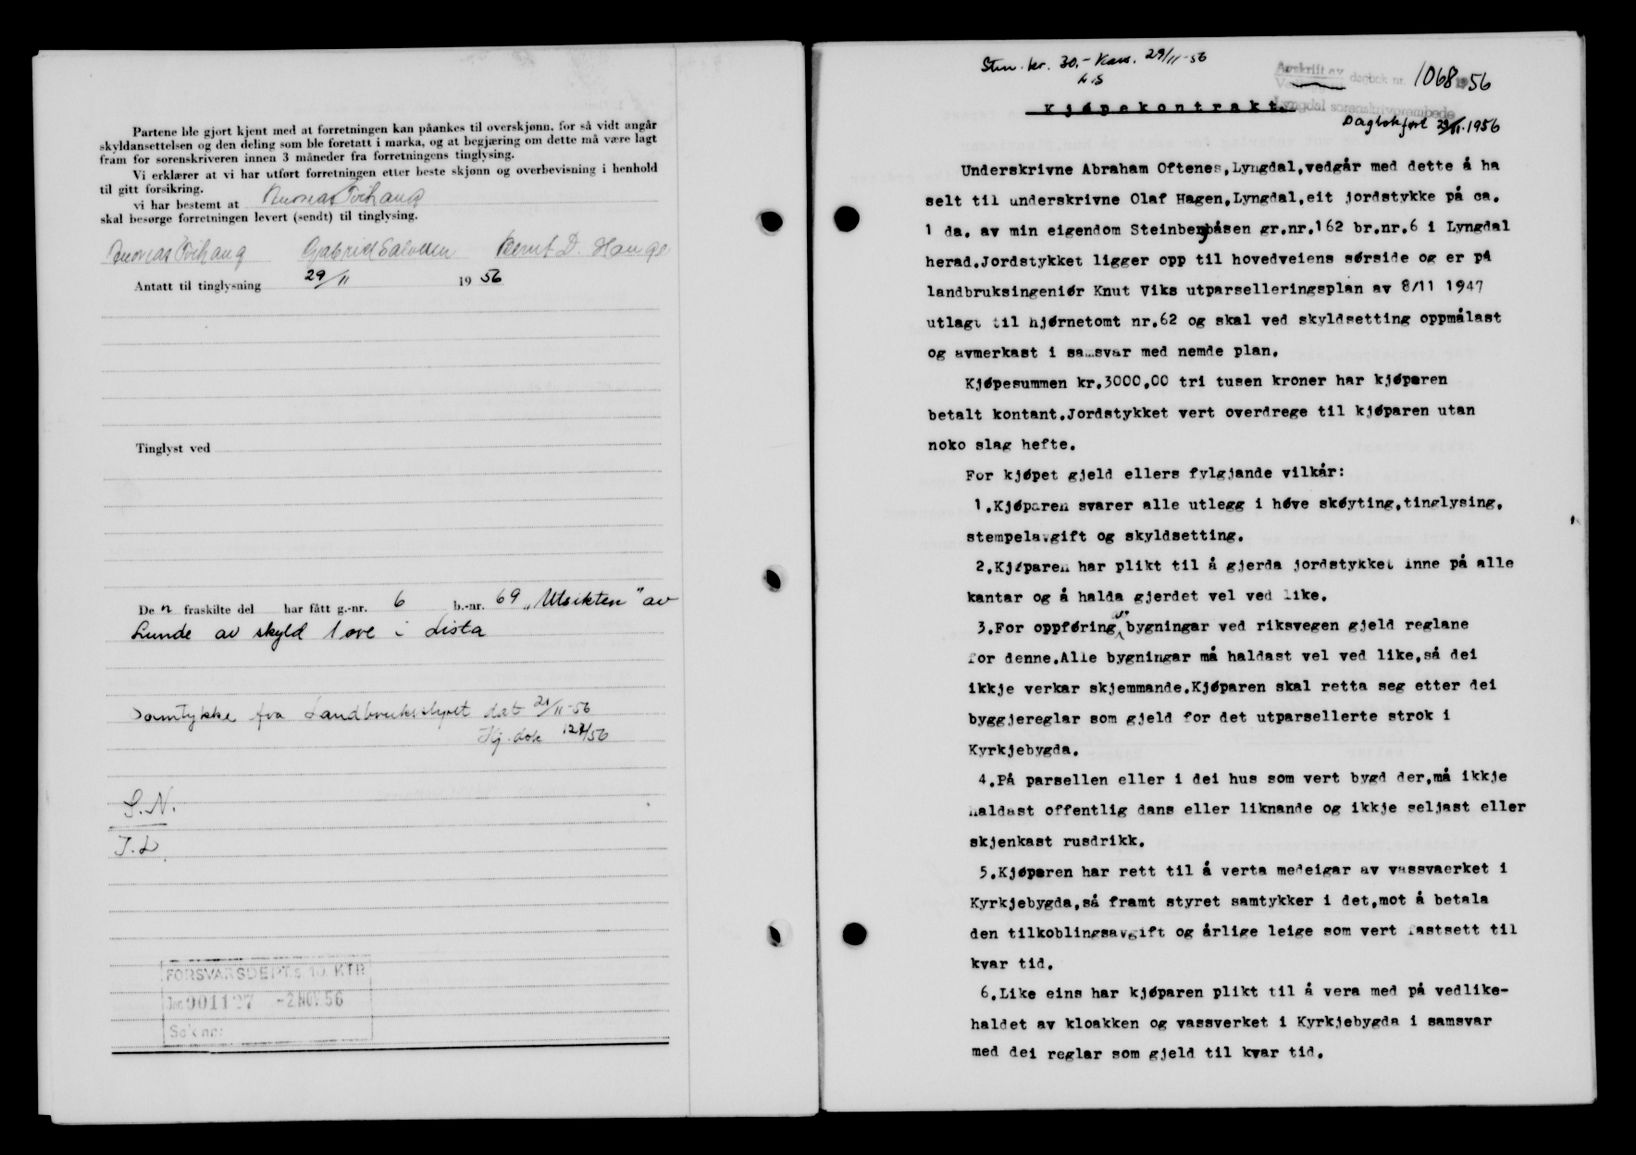 Partene ble gjort kjent med at forretningen kan påankes til overskjønn, for så vidt angår
skyldansettelsen og den deling som ble foretatt i marka, og at begjæring om dette må være lagt
fram for sorenskriveren innen 3 måneder fra forretningens tinglysing.
Vi erklærer at vi har utført forretningen etter beste skjønn og overbevisning i henhold
til gitt forsikring.
vi har bestemt at
skal besørge forretningen levert (sendt) til tinglysing.
Gabriel Bernt D. Hauge
Antatt til tinglysning 29/11 19 56
Tinglyst ved
De n fraskilte del har fått g.-nr. 6 b.-nr. 69 „Utsikten" av
Lunde av skyld 1 øre i Lista
Samtykke fra Landbruksstyret dat 21/11-56
S.N.
J.L.
FORSVARSDEPTs 10. KTR
Jnr 001127 -2 NOV 56
Sak nr:
Stm. kr. 30.- Kass. 29/11-56
L.S
Avskrift av dagbok nr. 1068 1956
Lyngdal sorenskriverembede
Kjøpekontrakt.
Dagbokført 29/11.1956
Underskrivne Abraham Oftenes,Lyngdal,vedgår med dette å ha
selt til underskrivne Olaf Hagen,Lyngdal,eit jordstykke på ca.
1 da. av min eigendom Steinbergbåsen gr.nr.162 br.nr.6 i Lyngdal
herad.Jordstykket ligger opp til hovedveiens sørside og er på
landbruksingeniør Knut Viks utparselleringsplan av 8/11 1947
utlagt til hjørnetomt nr.62 og skal ved skyldsetting oppmålast
og avmerkast i samsvar med nemde plan.
Kjøpesummen kr.3000,00 tri tusen kroner har kjøparen
betalt kontant.Jordstykket vert overdrege til kjøparen utan
noko slag hefte.
For kjøpet gjeld ellers fylgjande vilkår:
1.Kjøparen svarer alle utlegg i høve skøyting,tinglysing,
stempelavgift og skyldsetting.
2.Kjøparen har plikt til å gjerda jordstykket inne på alle
kantar og å halda gjerdet vel ved like.
3.For oppføring av bygningar ved riksvegen gjeld reglane
for denne.Alle bygningar må haldast vel ved like,så dei
ikkje verkar skjemmande.Kjøparen skal retta seg etter dei
byggjereglar som gjeld for det utparsellerte strok i
Kyrkjebygda.
4.På parsellen eller i dei hus som vert bygd der,må ikkje
haldast offentlig dans eller liknande og ikkje seljast eller
skjenkast rusdrikk.
5.Kjøparen har rett til å verta medeigar av vassvaerket i
Kyrkjebygda,så framt styret samtykker i det,mot å betala
den tilkoblingsavgift og årlige leige som vert fastsett til
kvar tid.
6.Like eins har kjøparen plikt til å vera med på vedlike-
haldet av kloakken og vassverket i Kyrkjebygda i samsvar
med dei reglar som gjeld til kvar tid.